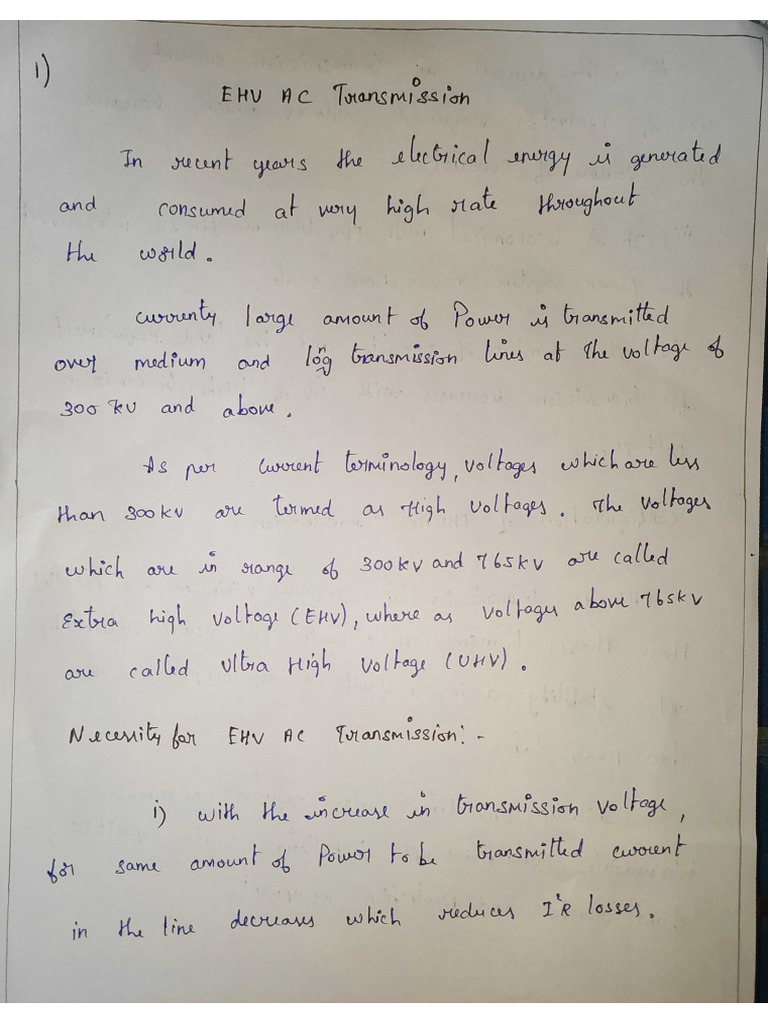 1)
EHV AC Transmission
In recent years the electrical energy is generated
and consumed at very high rate throughout
the world.
currenty large amount of Power is transmitted
over medium and long transmission lines at The voltage of
300 KV and above.
As per current terminology, voltages which are less
than 300KV are termed as High voltages. The voltages
which are in range of 300KV and 765KV are called
Extra high voltage (EHV), where as voltages above 765KV
are called Ultra High Voltage (UHV).
Necessity for EHV AC Transmission:-
i) with the increase in transmission voltage,
for same amount of Power to be transmitted current
in the line decreases which reduces I²R losses.